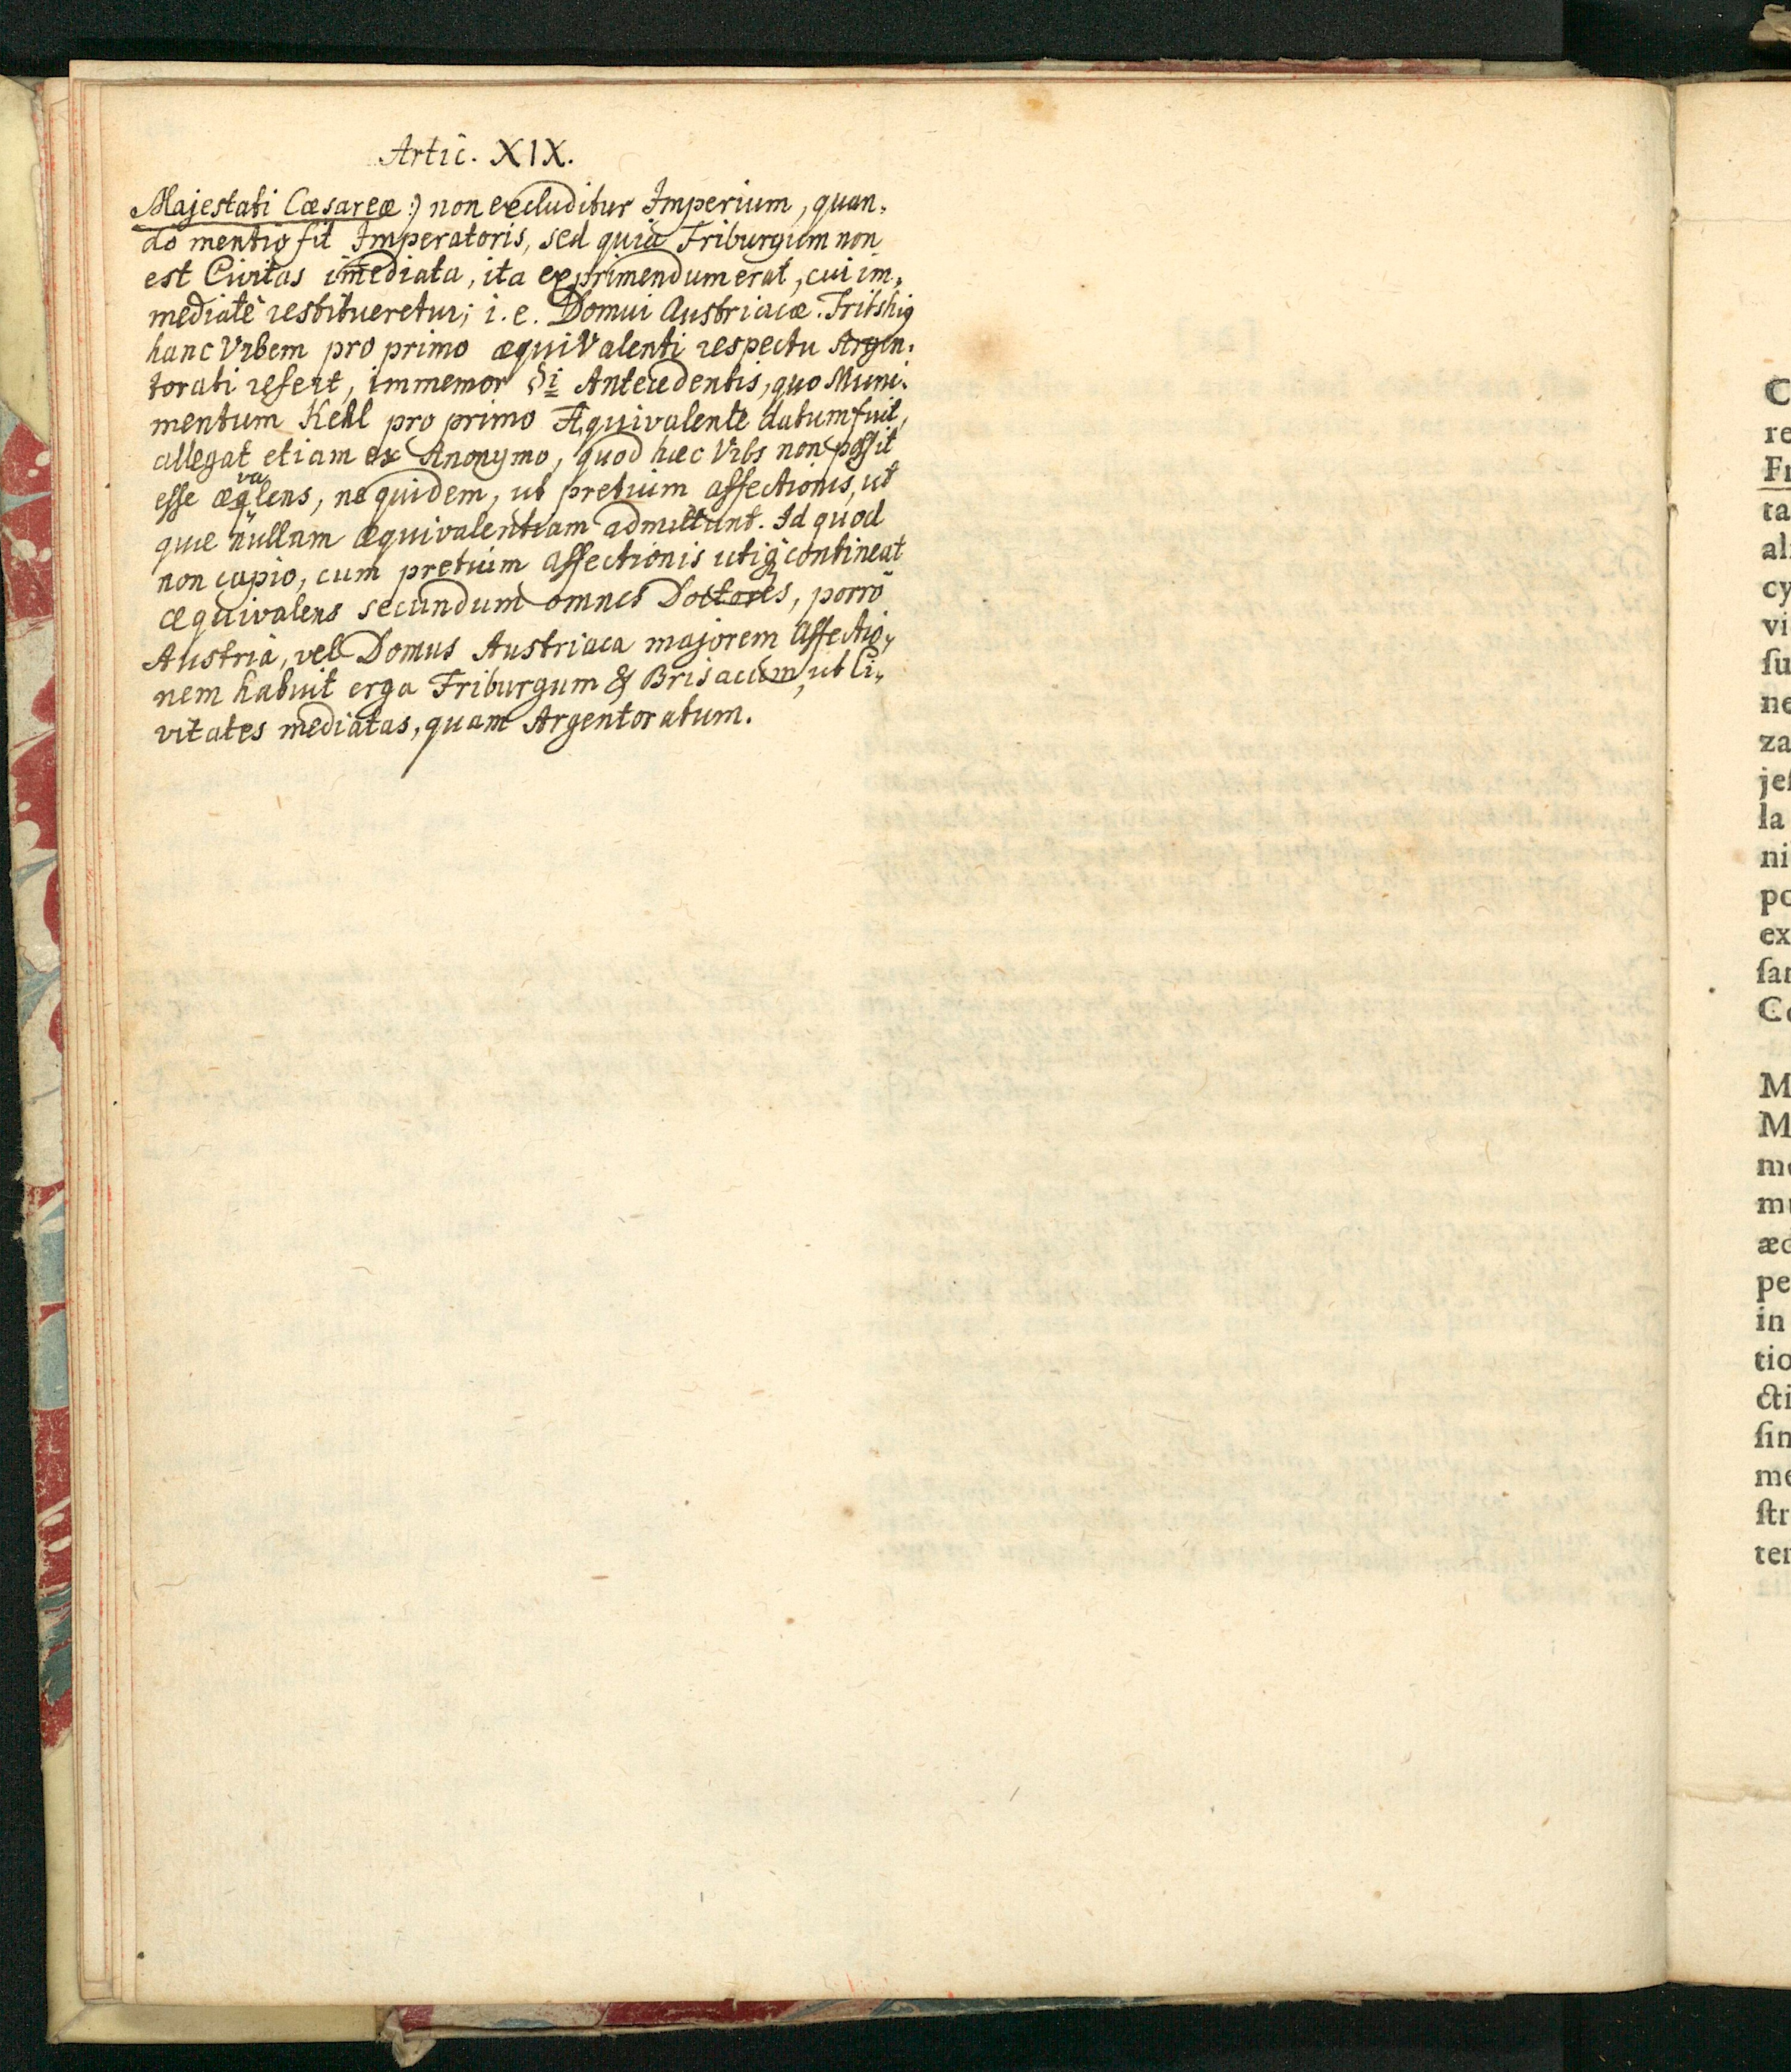 Artic. XIX.
Majestati Cæsareæ:) non excluditur Imperium, quan„
do mentio fit Imperatoris, sed quia Friburgum non
est Civitas im̄ediata, ita exprimendum erat, cui im„
mediatè restitueretur; i.e. Domui Austriacæ. Fritshig
hanc Urbem pro primo æquiValenti respectu Argen„
torati refert, immemor §i Antecedentis, quo Muni„
mentum Kehl pro primo Æquivalente datum fuit,
allegat etiam ex Anonymo, quod hæc Urbs non possit
esse æq̈valens, ne quidem, ut pretium affectionis, ut
quæ nullam æquivalentiam admittant. Id quod
non capio, cum pretium affectionis utiq̨ contineat
æquivalens secundum omnes Doctores, porrò
Austria, vel Domus Austriaca majorem affectio„
nem habuit erga Friburgum & Brisacum, ut Ci„
vitates mediatas, quam Argentoratum.
C
re
Fr
ta
al
cy
vi
ſu
ne
za
jeſ
la
ni
po
ex
ſan
Co
M
M
me
mu
æd
pe
in
tio
cti
ſin
me
ſtr
ter